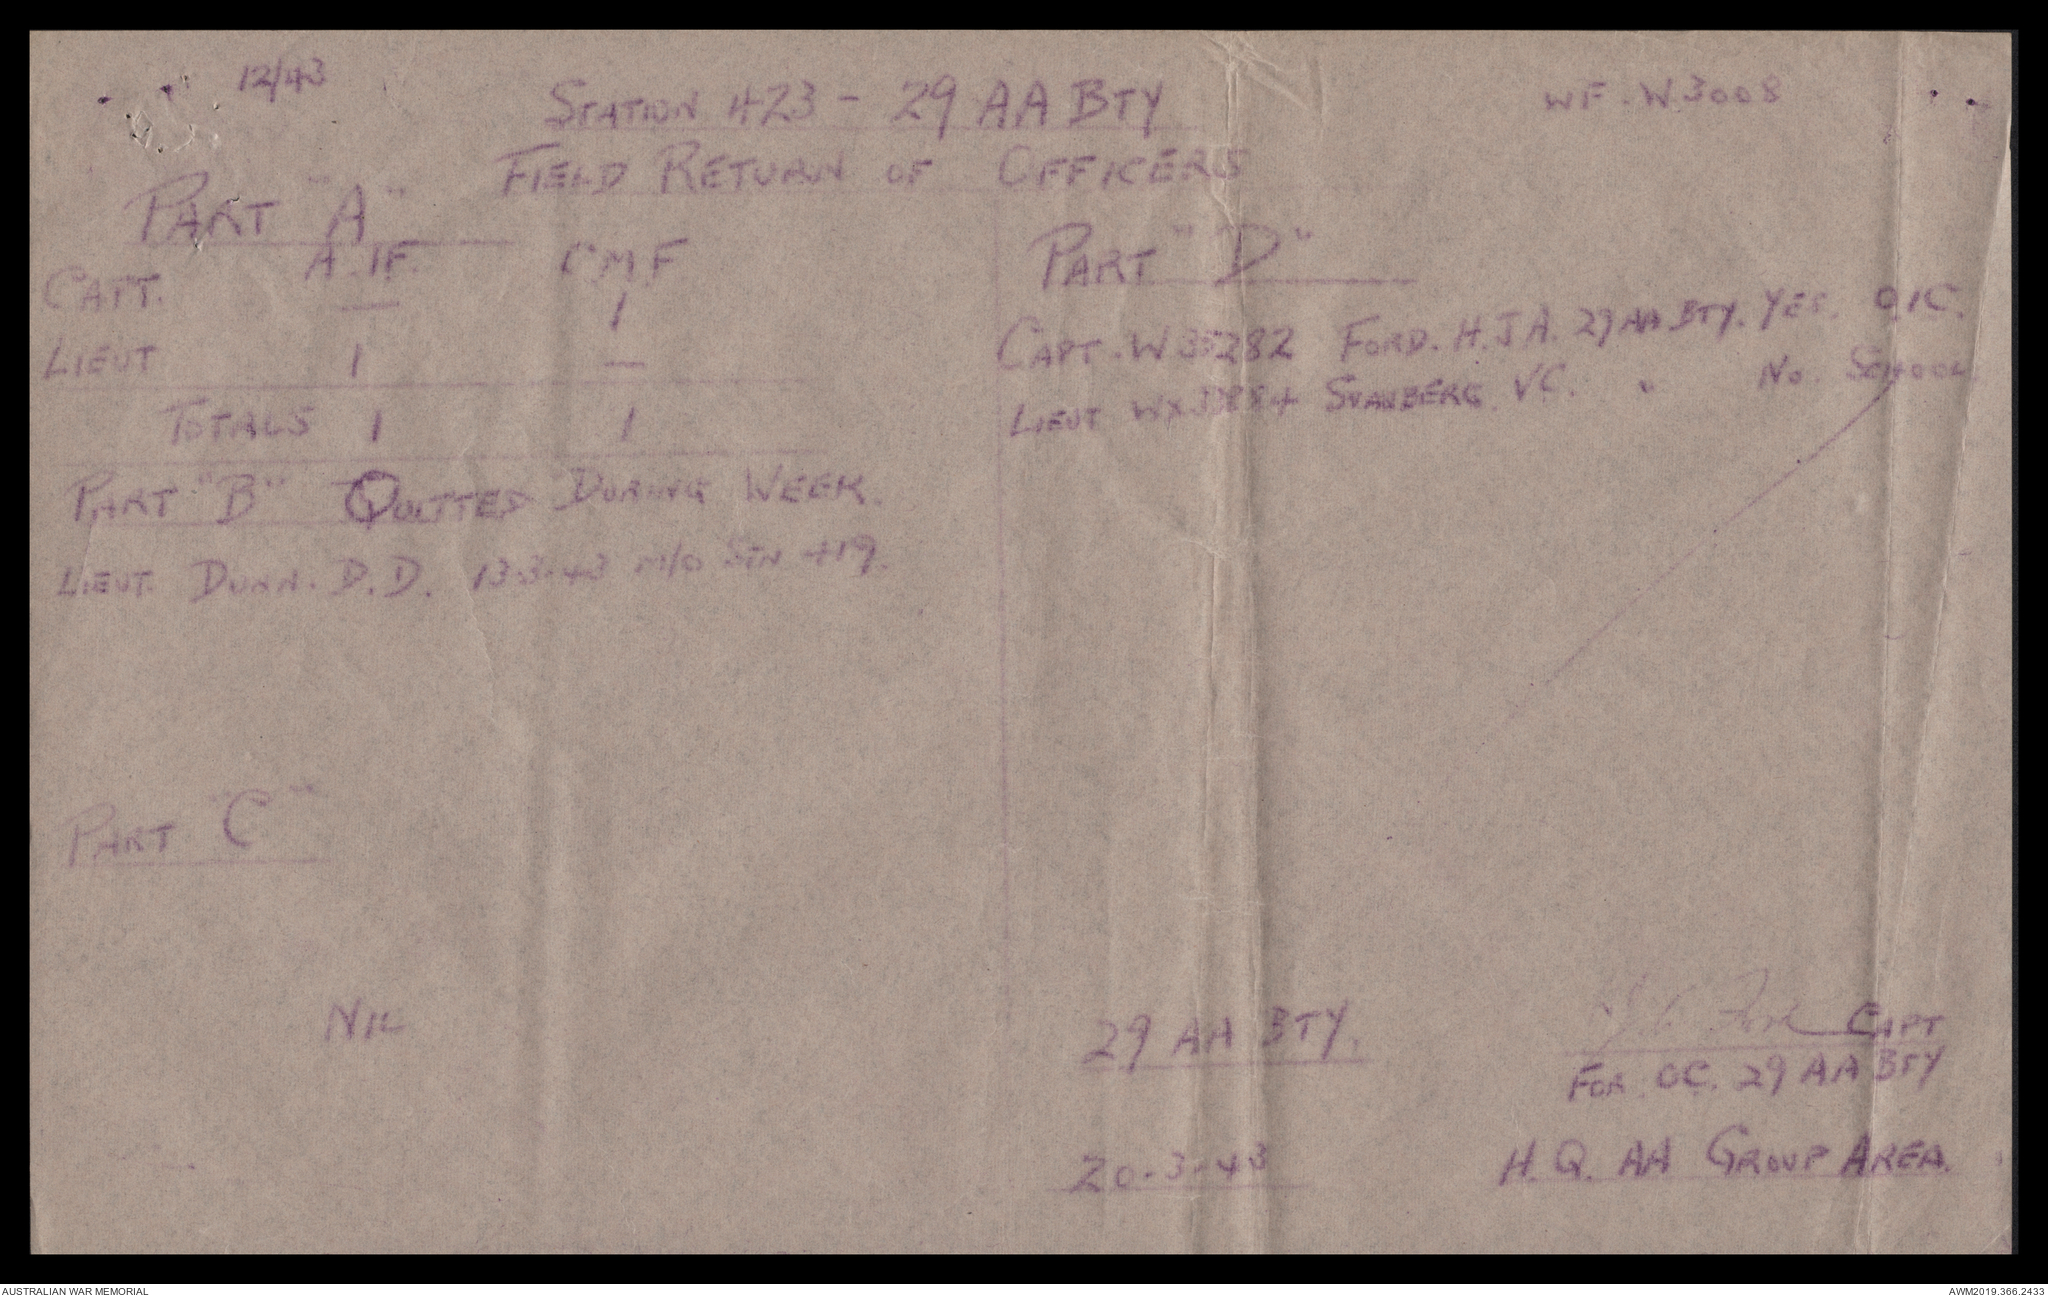 12/43
STATION 423 - 29 AA BTY
WF. W3008
FIELD RETURN OF OFFICERS
PART "A"
A.I.F. C M F
CAPT. — 1
LIEUT 1 —
TOTALS 1 1
PART "B" QUITTED DURING WEEK.
LIEUT. DUNN. D.D. 13.3.43 m/o STN 419.
PART "C"
NIL
PART "D"
CAPT. W35282 FORD. H.J A. 29 AA BTY. YES. O.I.C.
LIEUT SVANBERG V C. " No. SCHOOL
29 AA BTY.
CAPT
FOR. OC. 29 AA BTY
20-3-43
H.Q. AA GROUP AREA.
AUSTRALIAN WAR MEMORIAL
AWM2019.366.2433